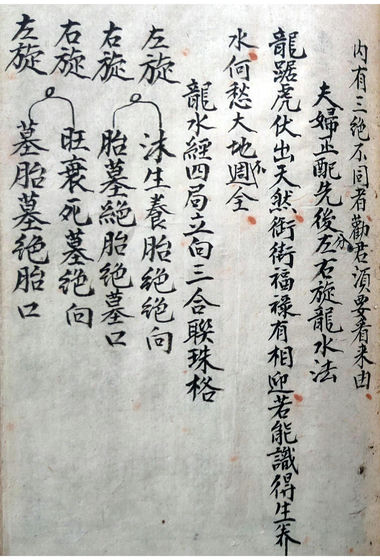 内有三绝不同者勸君須要看来由
夫婦正配先後分左右旋龍水法
龍踞虎伏出天然衙衙福禄有相迎若能識得生养
水何愁大地不週全
龍水經四局立向三合聯珠格
左旋 沐生養胎绝绝向
右旋 胎墓绝胎绝墓口
右旋 旺衰死墓绝向
左旋 墓胎墓绝胎口